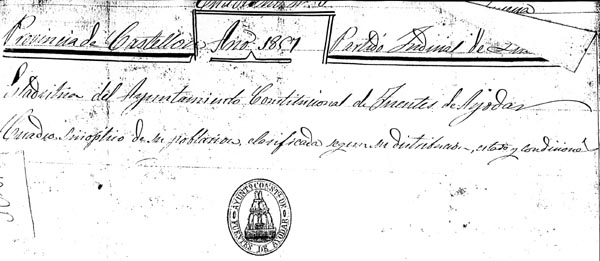 Provincia de Castellon Año 1857 Partido Judicial de
Estadistica del Ayuntamiento Constitucional de Fuentes de Ayodar
Cuadro Sinoptico de su poblacion, clasificada segun su distribucion, estado y condiciones
AYUNTO CONSTL DE
FUENTES DE AYODAR